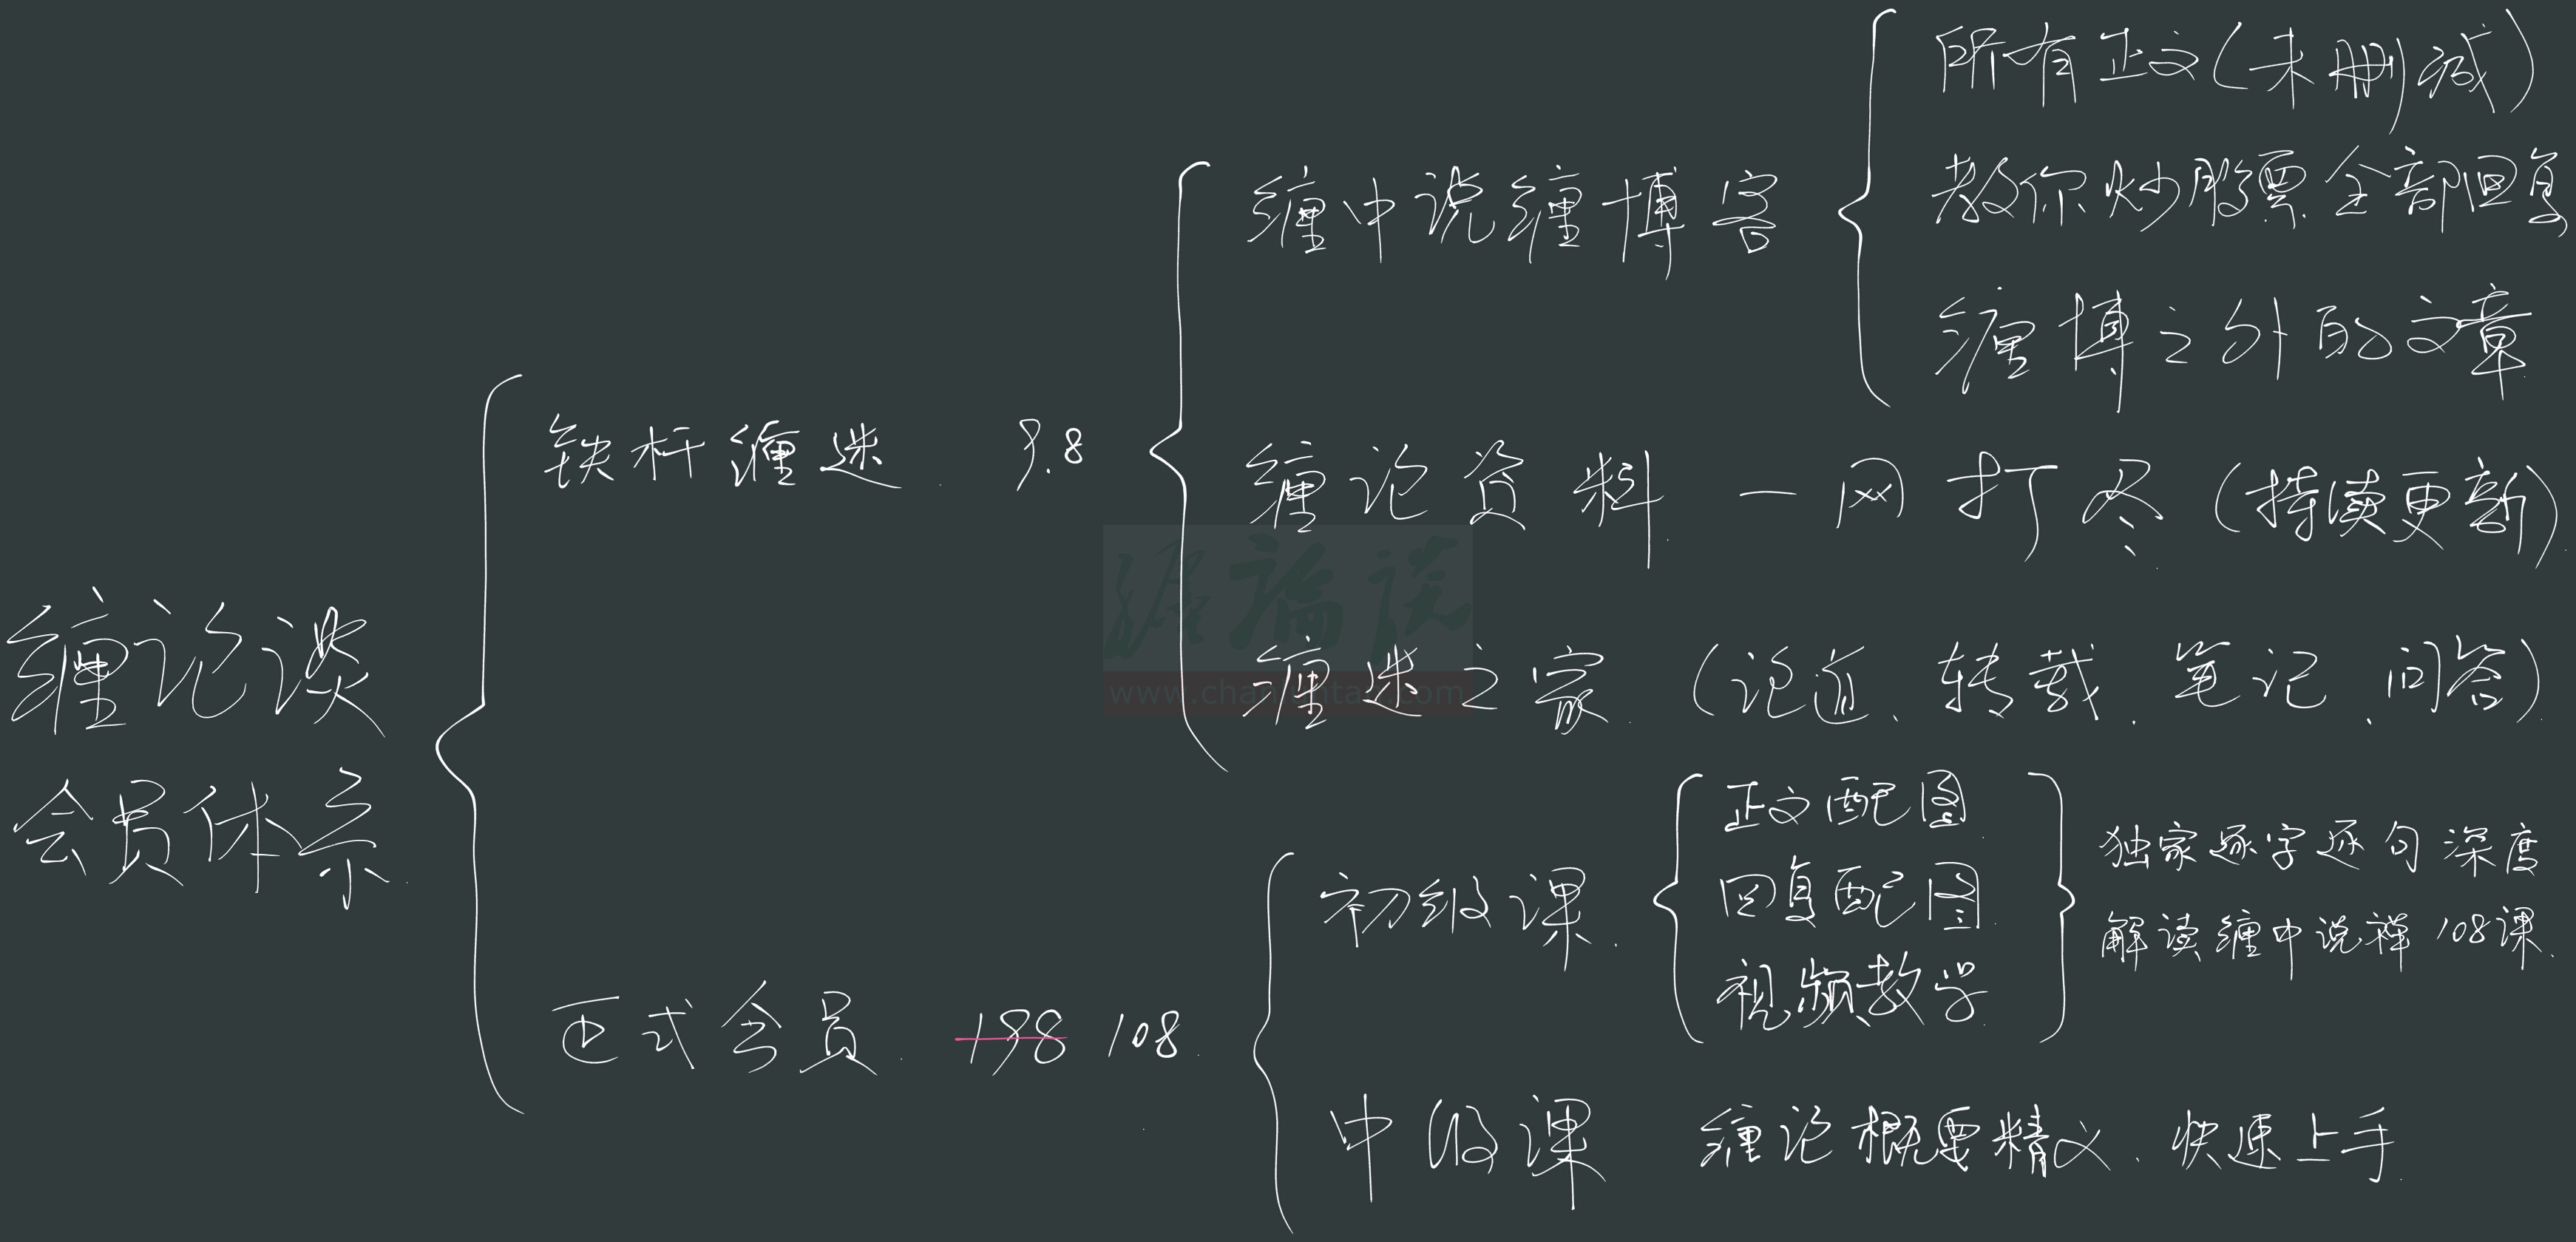 缠论谈
会员体系
铁杆缠迷 9.8
缠中说缠博客
所有正文(未删减)
教你炒股票全部回复
缠博之外的文章
缠论资料 一网打尽(持续更新)
缠迷之家(论道、转载、笔记、问答)
正式会员 198 108
初级课
正文配图
回复配图
视频教学
独家逐字逐句深度
解读缠中说禅108课
中级课 缠论概要精义、快速上手
纏論談